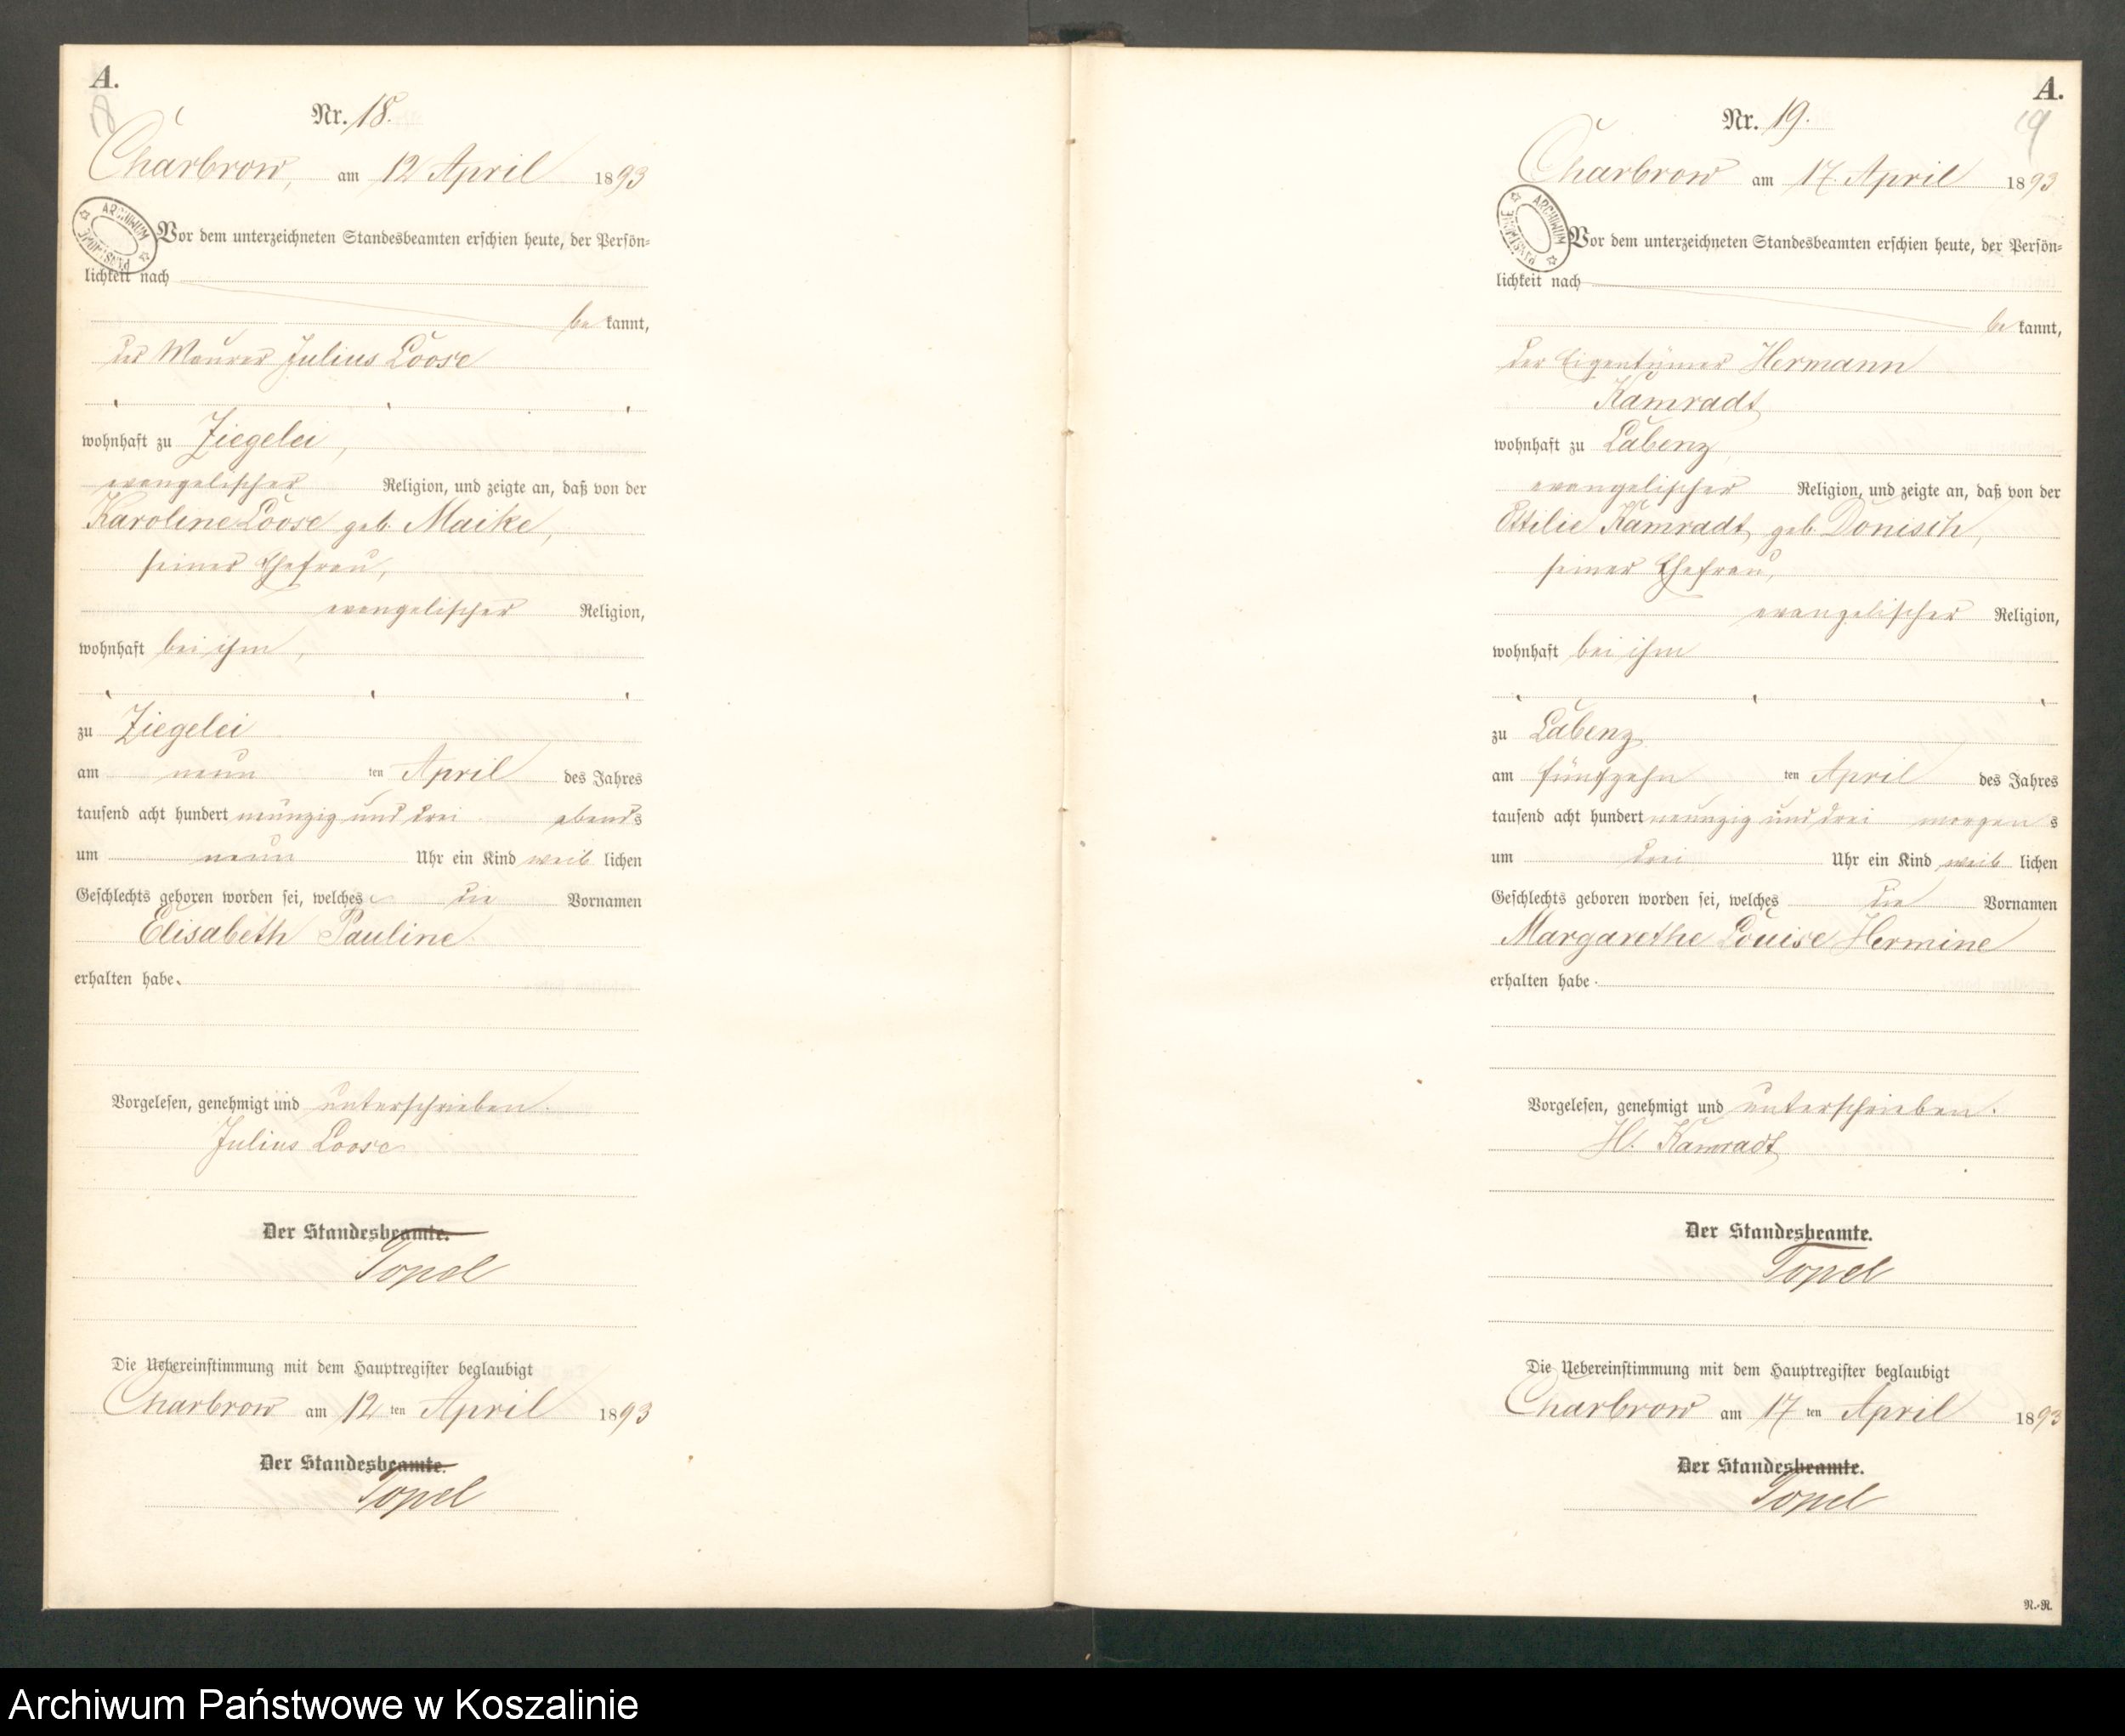 A.
18
Nr. 18.
Charbrow, am 12 April 1893
ARCHIWUM PAŃSTWOWE
Vor dem unterzeichneten Standesbeamten erschien heute, der Persön-
lichkeit nach
be kannt,
der Maurer Julius Loose
wohnhaft zu Ziegelei,
evangelischer Religion, und zeigte an, daß von der
Karoline Loose geb. Maike,
seiner Ehefrau,
evangelischer Religion,
wohnhaft bei ihm,
zu Ziegelei
am neun ten April des Jahres
tausend acht hundert neunzig und drei abends
um neun Uhr ein Kind weib lichen
Geschlechts geboren worden sei, welches die Vornamen
Elisabeth Pauline
erhalten habe.
Vorgelesen, genehmigt und unterschrieben.
Julius Loose
Der Standesbeamte.
Topel
Die Uebereinstimmung mit dem Hauptregister beglaubigt
Charbrow am 12 ten April 1893
Der Standesbeamte.
Topel
A.
19
Nr. 19.
Charbrow am 17. April 1893
ARCHIWUM PAŃSTWOWE
Vor dem unterzeichneten Standesbeamten erschien heute, der Persön-
lichkeit nach
be kannt,
der Eigentümer Hermann
Kamradt
wohnhaft zu Labenz
evangelischer Religion, und zeigte an, daß von der
Ottilie Kamradt, geb. Donisch,
seiner Ehefrau,
evangelischer Religion,
wohnhaft bei ihm
zu Labenz
am fünfzehn ten April des Jahres
tausend acht hundert neunzig und drei morgen s
um drei Uhr ein Kind weib lichen
Geschlechts geboren worden sei, welches die Vornamen
Margarethe Louise Hermine
erhalten habe.
Vorgelesen, genehmigt und unterschrieben.
H. Kamradt
Der Standesbeamte.
Topel
Die Uebereinstimmung mit dem Hauptregister beglaubigt
Charbrow am 17 ten April 1893
Der Standesbeamte.
Topel
R.-R.
Archiwum Państwowe w Koszalinie